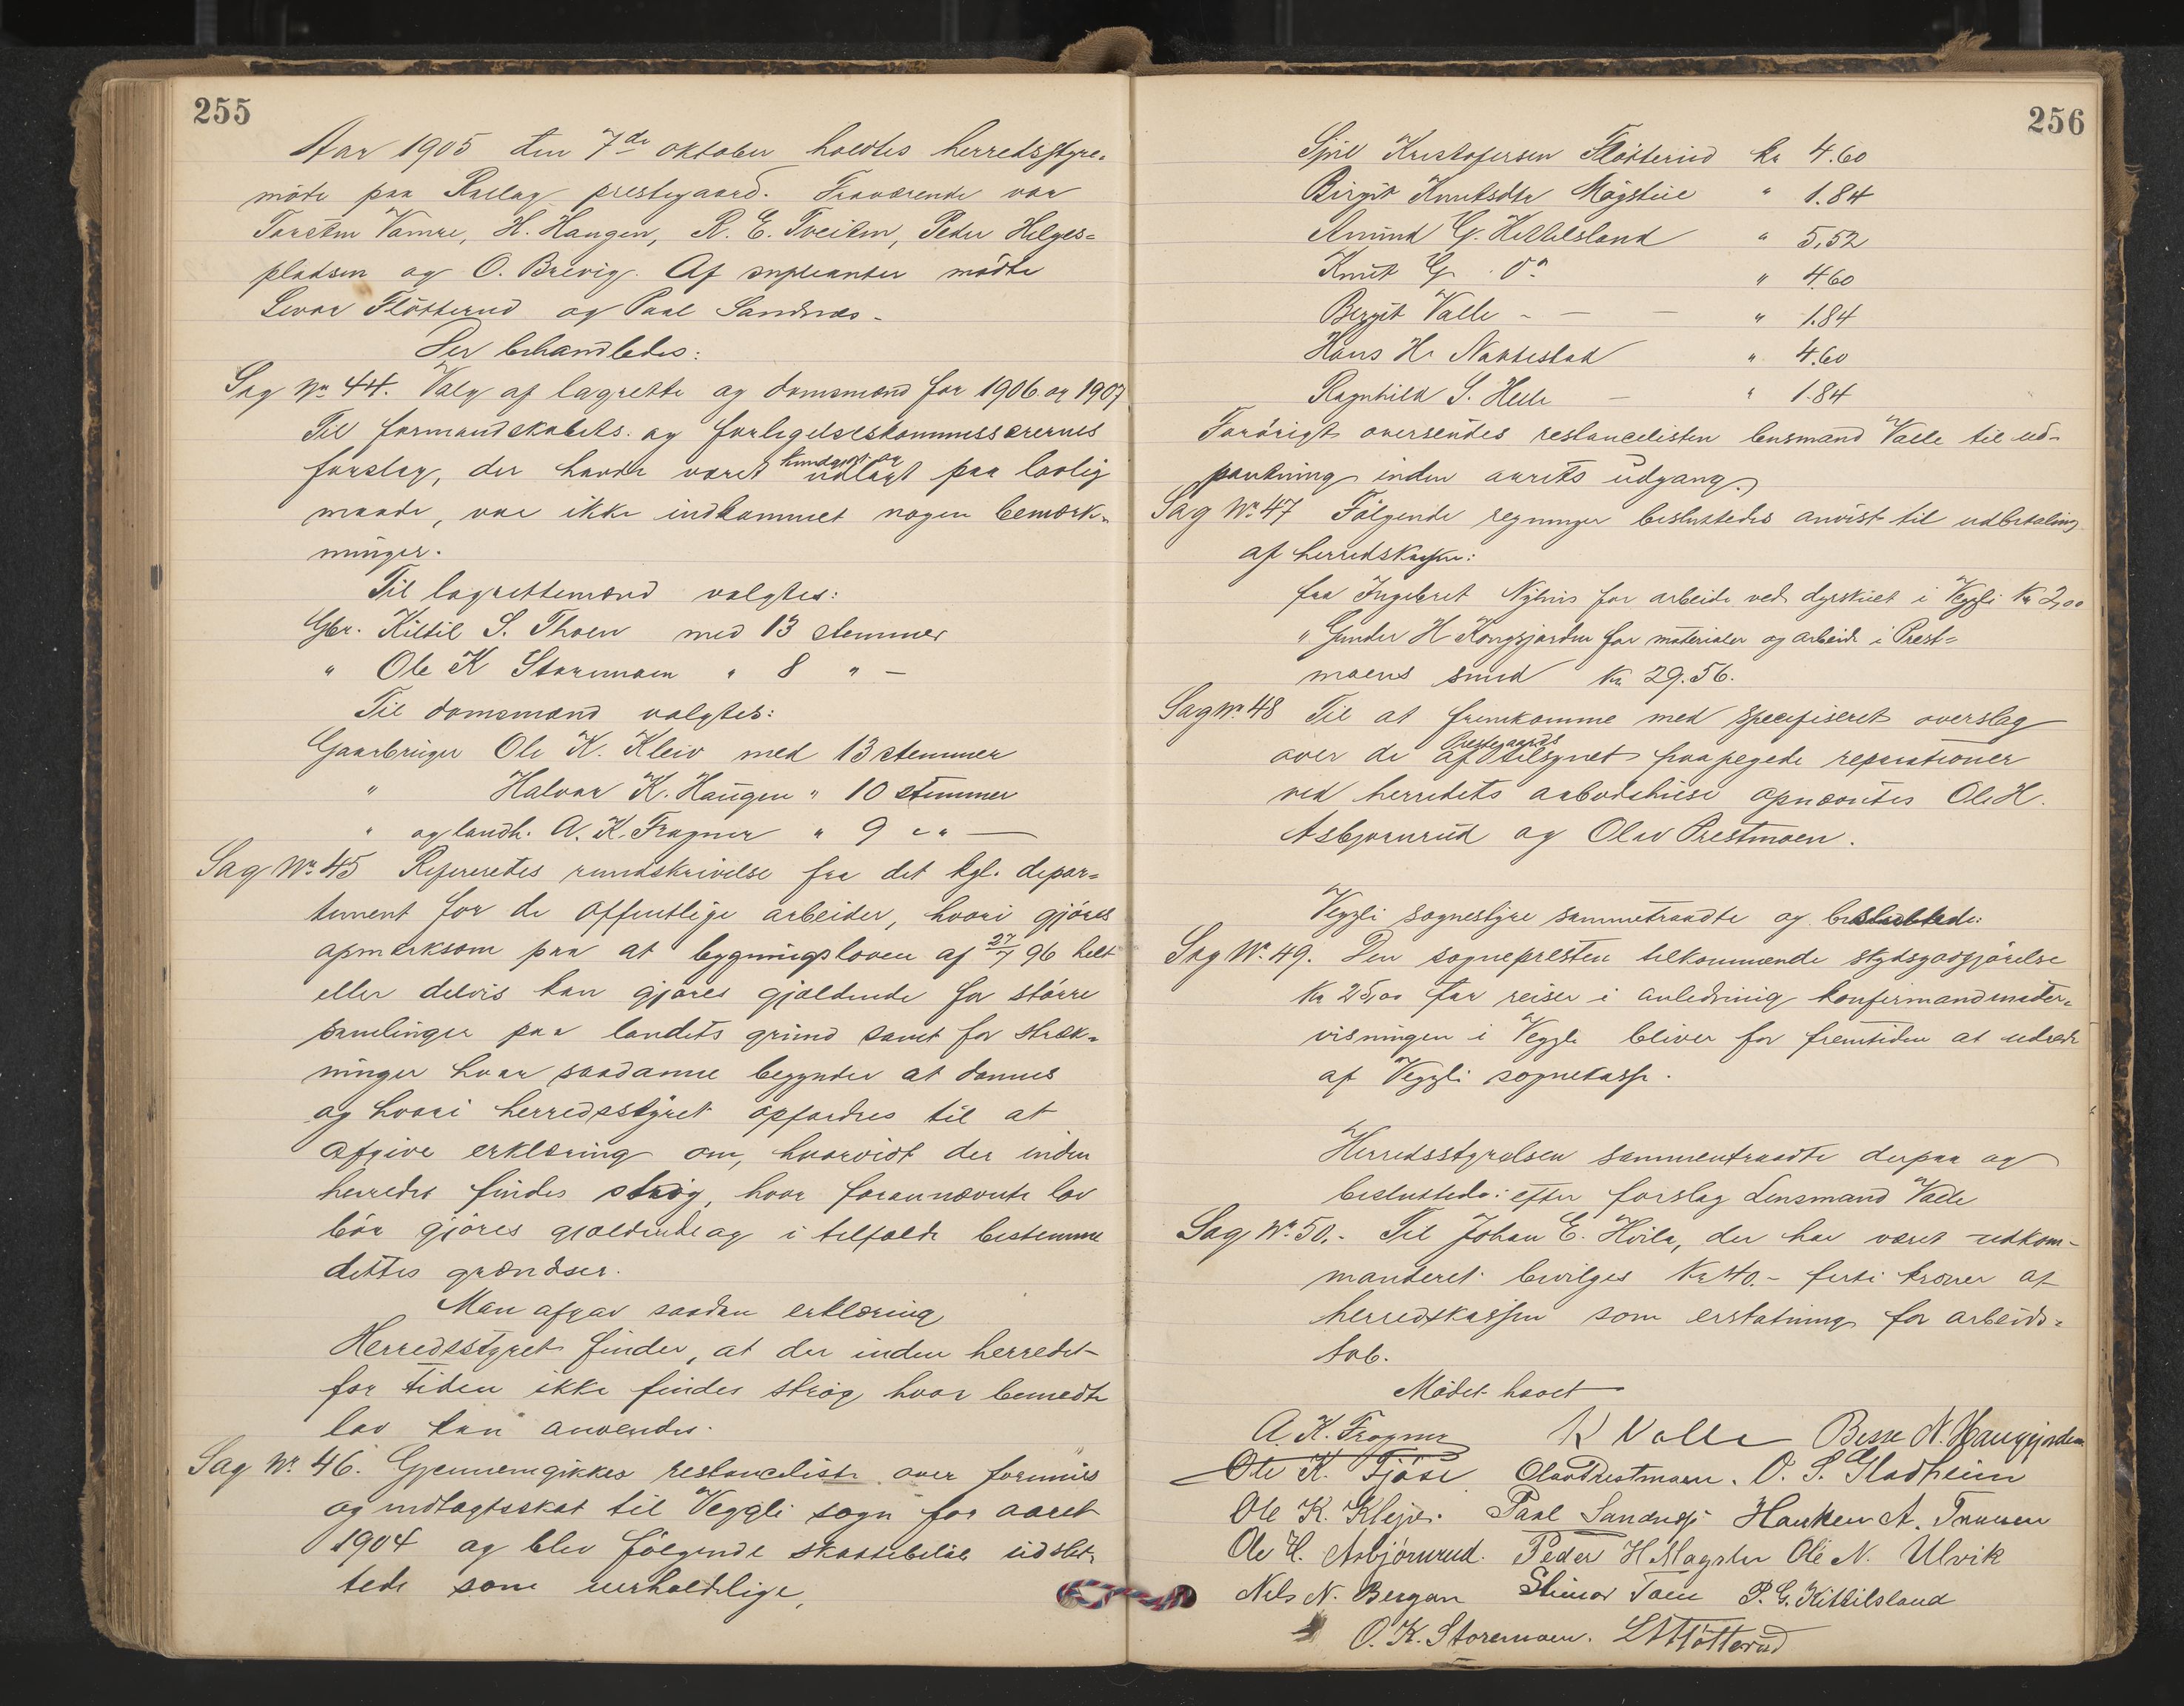 255
Aar 1905 den 7de oktober holdtes herredsstyre-
möde paa Rollag prestegaard. Fraværende var
Torsten Vamre, H. Haugen, R. E. Tveiten, Peder Helges-
pladsen og O. Brevig. Af supleanter mödte
Levor Flötterud og Paal Sandnes.
Der behandledes:
Sag No 44. Valg af lagrette og domsmænd for 1906 og 1907
Til formandskabets og forligelseskommissærernes
forslag, der havde været kundgjort og udlagt paa lovlig
maade, var ikke indkommet nogen bemærk-
ninger.
Til lagrettemænd valgtes:
Gbr. Kittil S. Thoen med 13 stemmer
" Ole K Storemoen " 8 " —
Til domsmænd valgtes:
Gaarbruger Ole K. Kleiv med 13 stemmer
" Halvor K. Haugen " 10 stemmer
" og landh. A. K. Fragner " 9 " " —
Sag No 45 Refereredes rundskrivelse fra det kgl. depar-
tement for de offentlige arbeider, hvori gjöres
opmerksom paa at bygningsloven af 27/7 96 helt
eller delvis kan gjøres gjældende for större
samlinger paa landets grund samt for stræk-
ninger hvor saadanne begynder at dannes
og hvori herredsstyret opfordres til at
afgive erklæring om, hvorvidt der inden
herredet findes strög, hvor forannævnte lov
bör gjöres gjældende og i tilfælde bestemme
dettes grændser.
Man afgav saadan erklæring
Herredsstyret finder, at der inden herredet
for tiden ikke findes strög hvor bemeldte
lov kan anvendes.
Sag No 46. Gjennemgikkes restanceliste over formues
og indtægtsskat til Veggli sogn for aaret
1904 og blev følgende skattebeløb udslet-
tede som uerholdelige,
256
Kristofersen Flötterud kr 4.60
Birgit Knutsdtr Mogstue " 1.84
Amund G. Kittilsland " 5,52
Knut G. Do " 4.60
Bergit Valle - — — " 1.84
Hans H. Nakkestad " 4.60
Ragnhild S. Helle — " 1.84
Forörigt oversendes restancelisten lensmand Valle til ud-
pantning inden aarets udgang.
Sag No 47 Fölgende regninger besluttedes anvist til udbetaling
af herredskassen:
fra Ingebret Nyhus for arbeide ved dyrskuet i Veggli Kr 2,00
" Gunder H Kongsjorden for materialer og arbeide i Prest-
moens sund Kr 29.56.
Sag No 48 Til at fremkomme med specifiseret overslag
over de af Prestegaards tilsynet paapegede reparationer
ved herredets aabodshuse opnævntes Ole H.
Asbjørnrud og Olav Prestmoen.
Veggli sognestyre sammentraadte og besluttede:
Sag No 49. Den sognepresten tilkommende skydsgodtgjörelse
Kr 25,00 for reiser i anledning konfirmandunder-
visningen i Veggli bliver for fremtiden at udrede
af Veggli sognekasse.
Herredsstyrelsen sammentraadte derpaa og
besluttede: efter forslag Lensmand Valle
Sag No 50.- Til Johan E. Hvila, der har været udkom-
manderet bevilges Kr 40.- firti kroner af
herredskassen som erstatning for arbeids-
tab.
Mødet hævet
A. K. Fragner K Valle Besse N. Haugsjordem
Ole K. Fjöse Olav Prestmoen. O. S. Gladheim
Ole K. Kleiv. Paal Sandnes Haaken A.
Ole H. Asbjörnrud. Peder H. Ole N. Ulvik
Nels N. Bergan Steinar Toen P. G. Kittilsland
O. K. Storemoen. L Flötterud